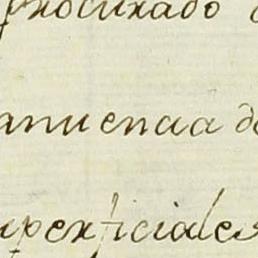 procurado
anuencia de
uperficiales